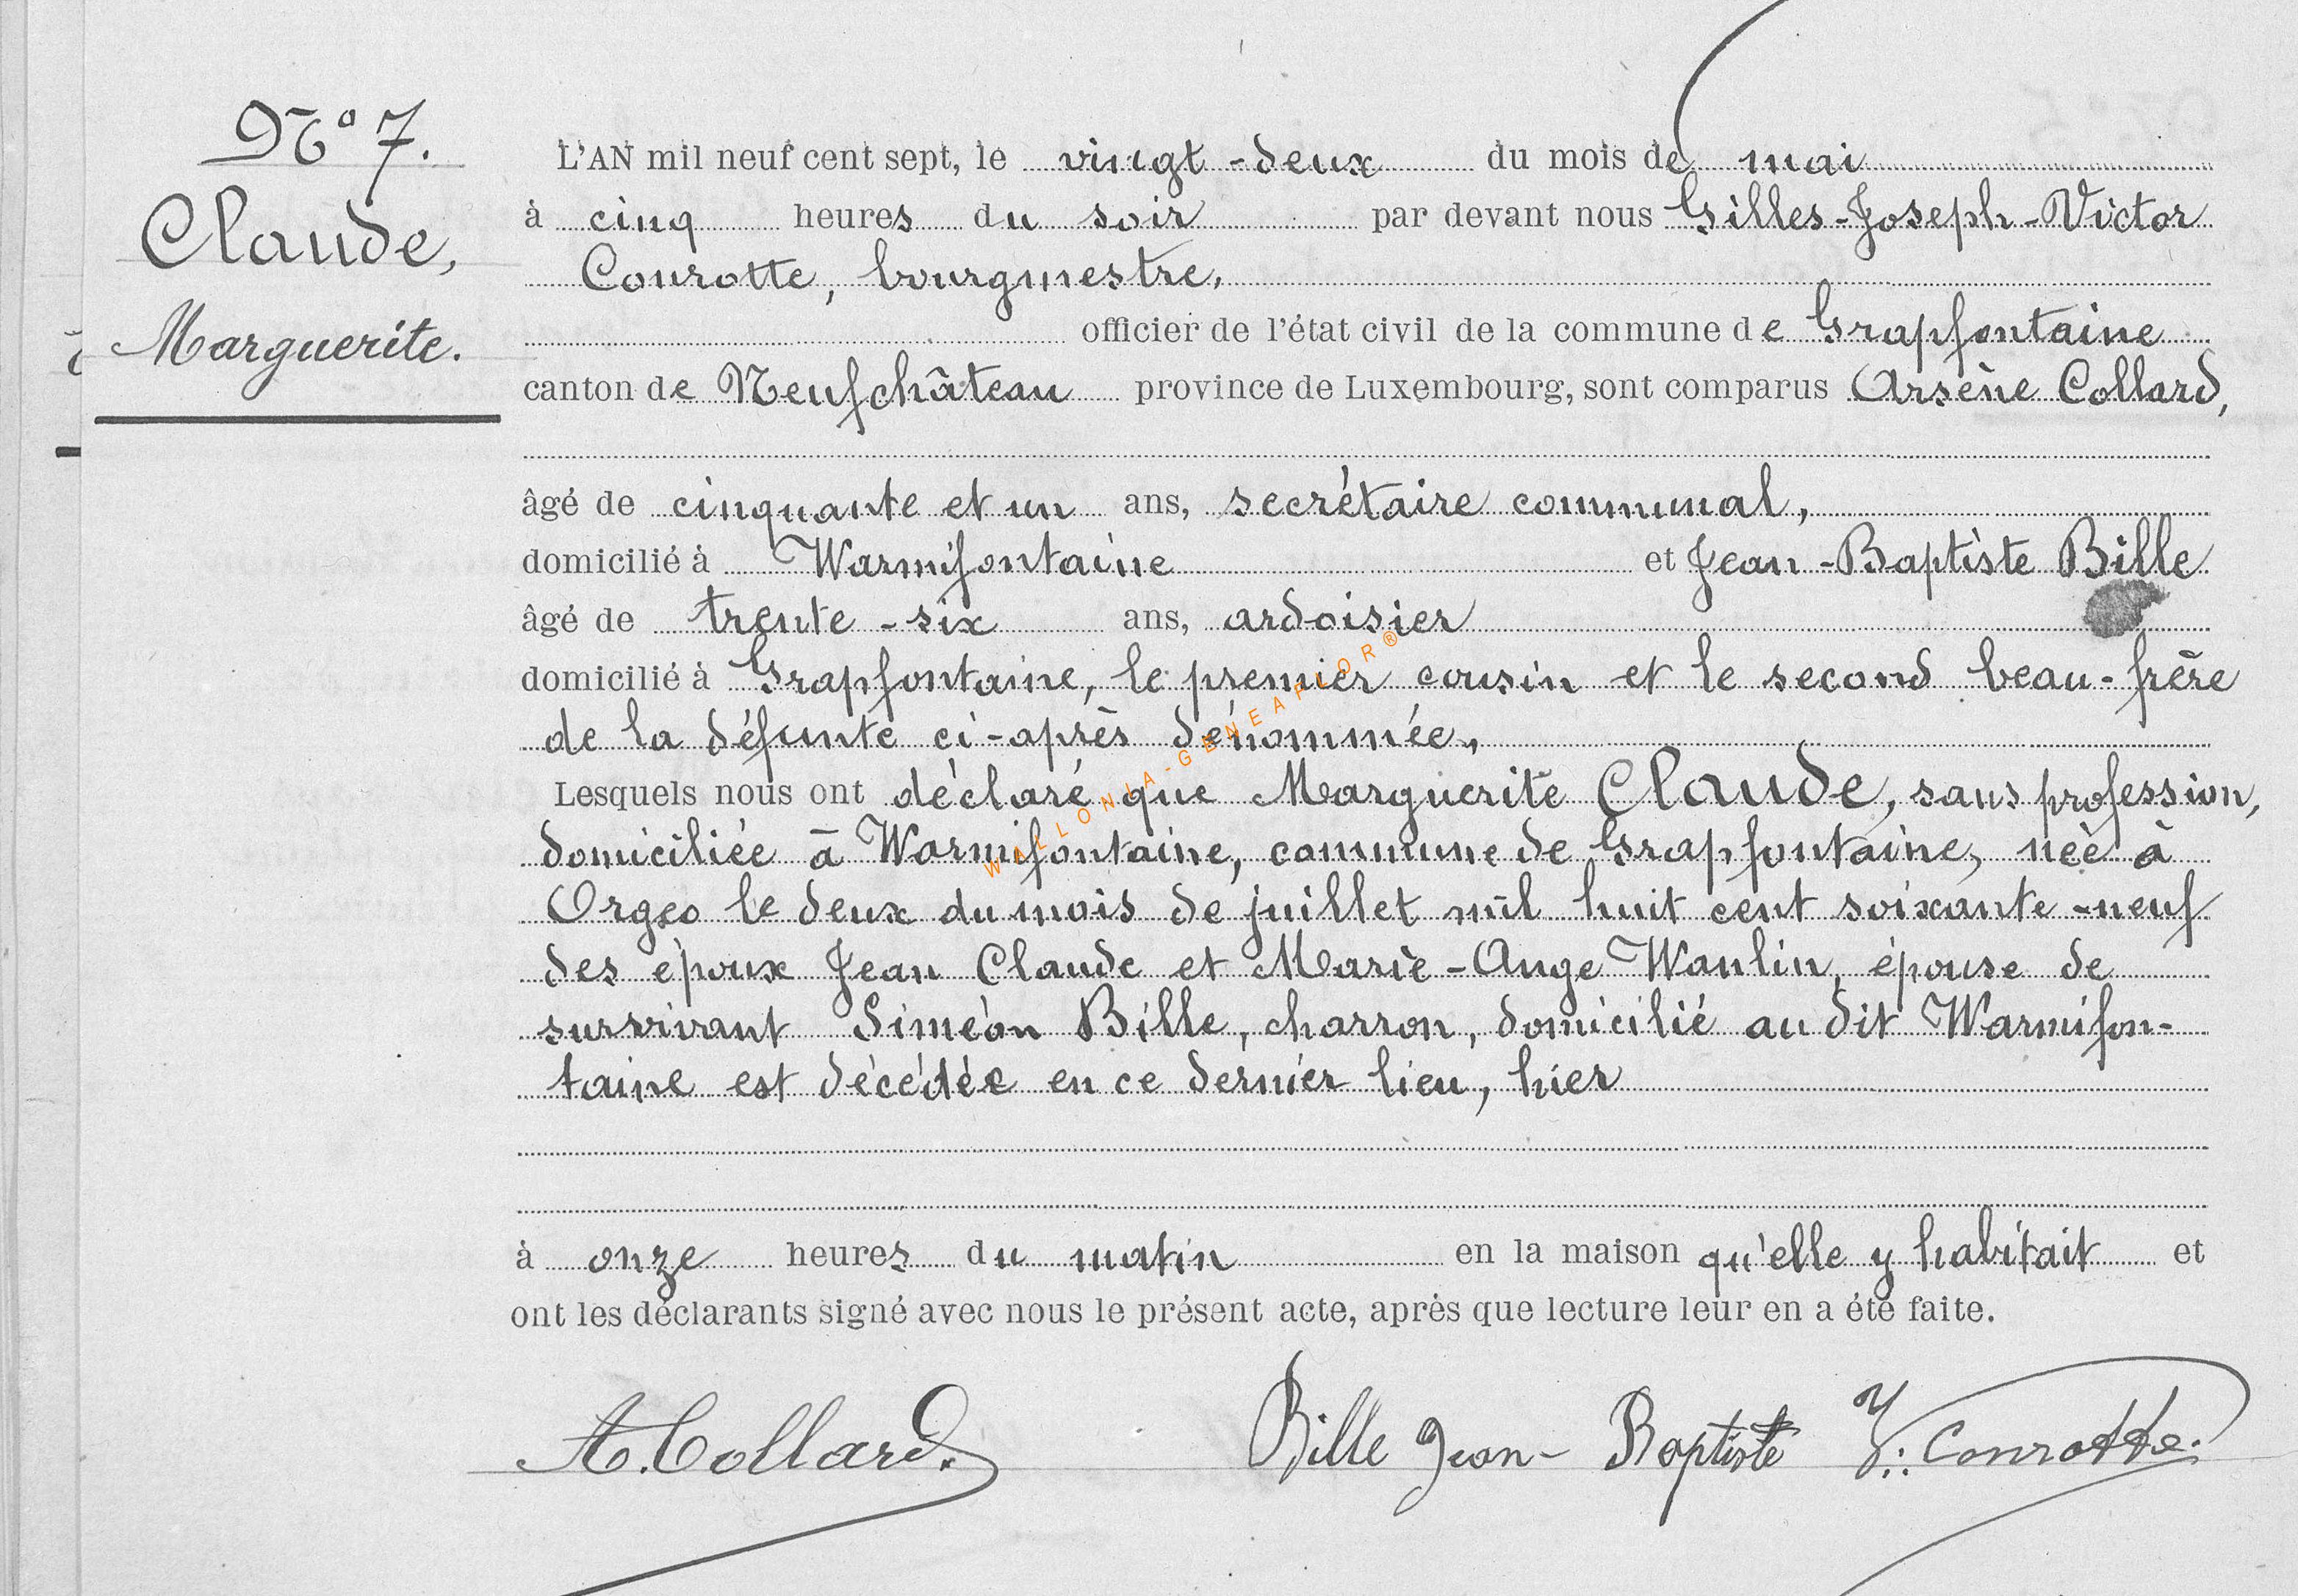 N° 7.
Claude,
Marguerite.
L'AN mil neuf cent sept, le vingt-deux du mois de mai
à cinq heures du soir par devant nous Gilles-Joseph-Victor
Conrotte, bourgmestre,
officier de l'état civil de la commune de Grapfontaine
canton de Neufchâteau province de Luxembourg, sont comparus Arsène Collard,
âgé de cinquante et un ans, secrétaire communal,
domicilié à Warmifontaine et Jean-Baptiste Bille
âgé de trente-six ans, ardoisier
domicilié à Grapfontaine, le premier cousin et le second beau-frère
de la défunte ci-après dénommée,
Lesquels nous ont déclaré que Marguerite Claude, sans profession,
domiciliée à Warmifontaine, commune de Grapfontaine, née à
Orgeo le deux du mois de juillet mil huit cent soixante-neuf
des époux Jean Claude et Marie-Ange Wanlin, épouse de
survivant Siméon Bille, charron, domicilié au dit Warmifon-
taine est décédée en ce dernier lieu, hier
à onze heures du matin en la maison qu'elle y habitait et
ont les déclarants signé avec nous le présent acte, après que lecture leur en a été faite.
A. Collard. Bille Jean-Baptiste V. Conrotte.
WALLONIA-GENEAFLOR®